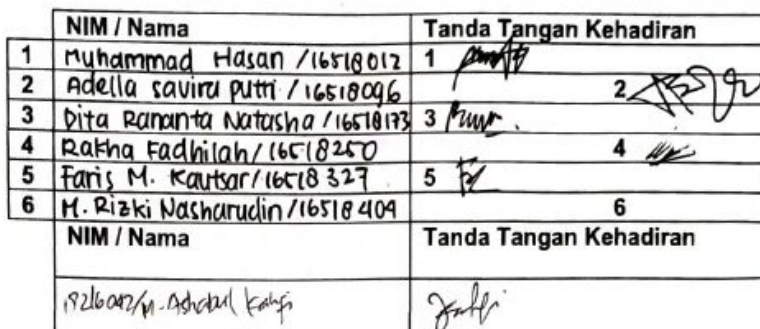 NIM / Nama Tanda Tangan Kehadiran
1 Muhammad Hasan /16518012 1
2 Adella savira putri / 16518096 2
3 Dita Rananta Natasha /16518173 3
4 Rakha Fadhilah/ 16518250 4
5 Faris M. Kautsar/ 16518327 5
6 M. Rizki Nasharudin /16518404 6
NIM / Nama Tanda Tangan Kehadiran
/M. Ashabul Kahfi